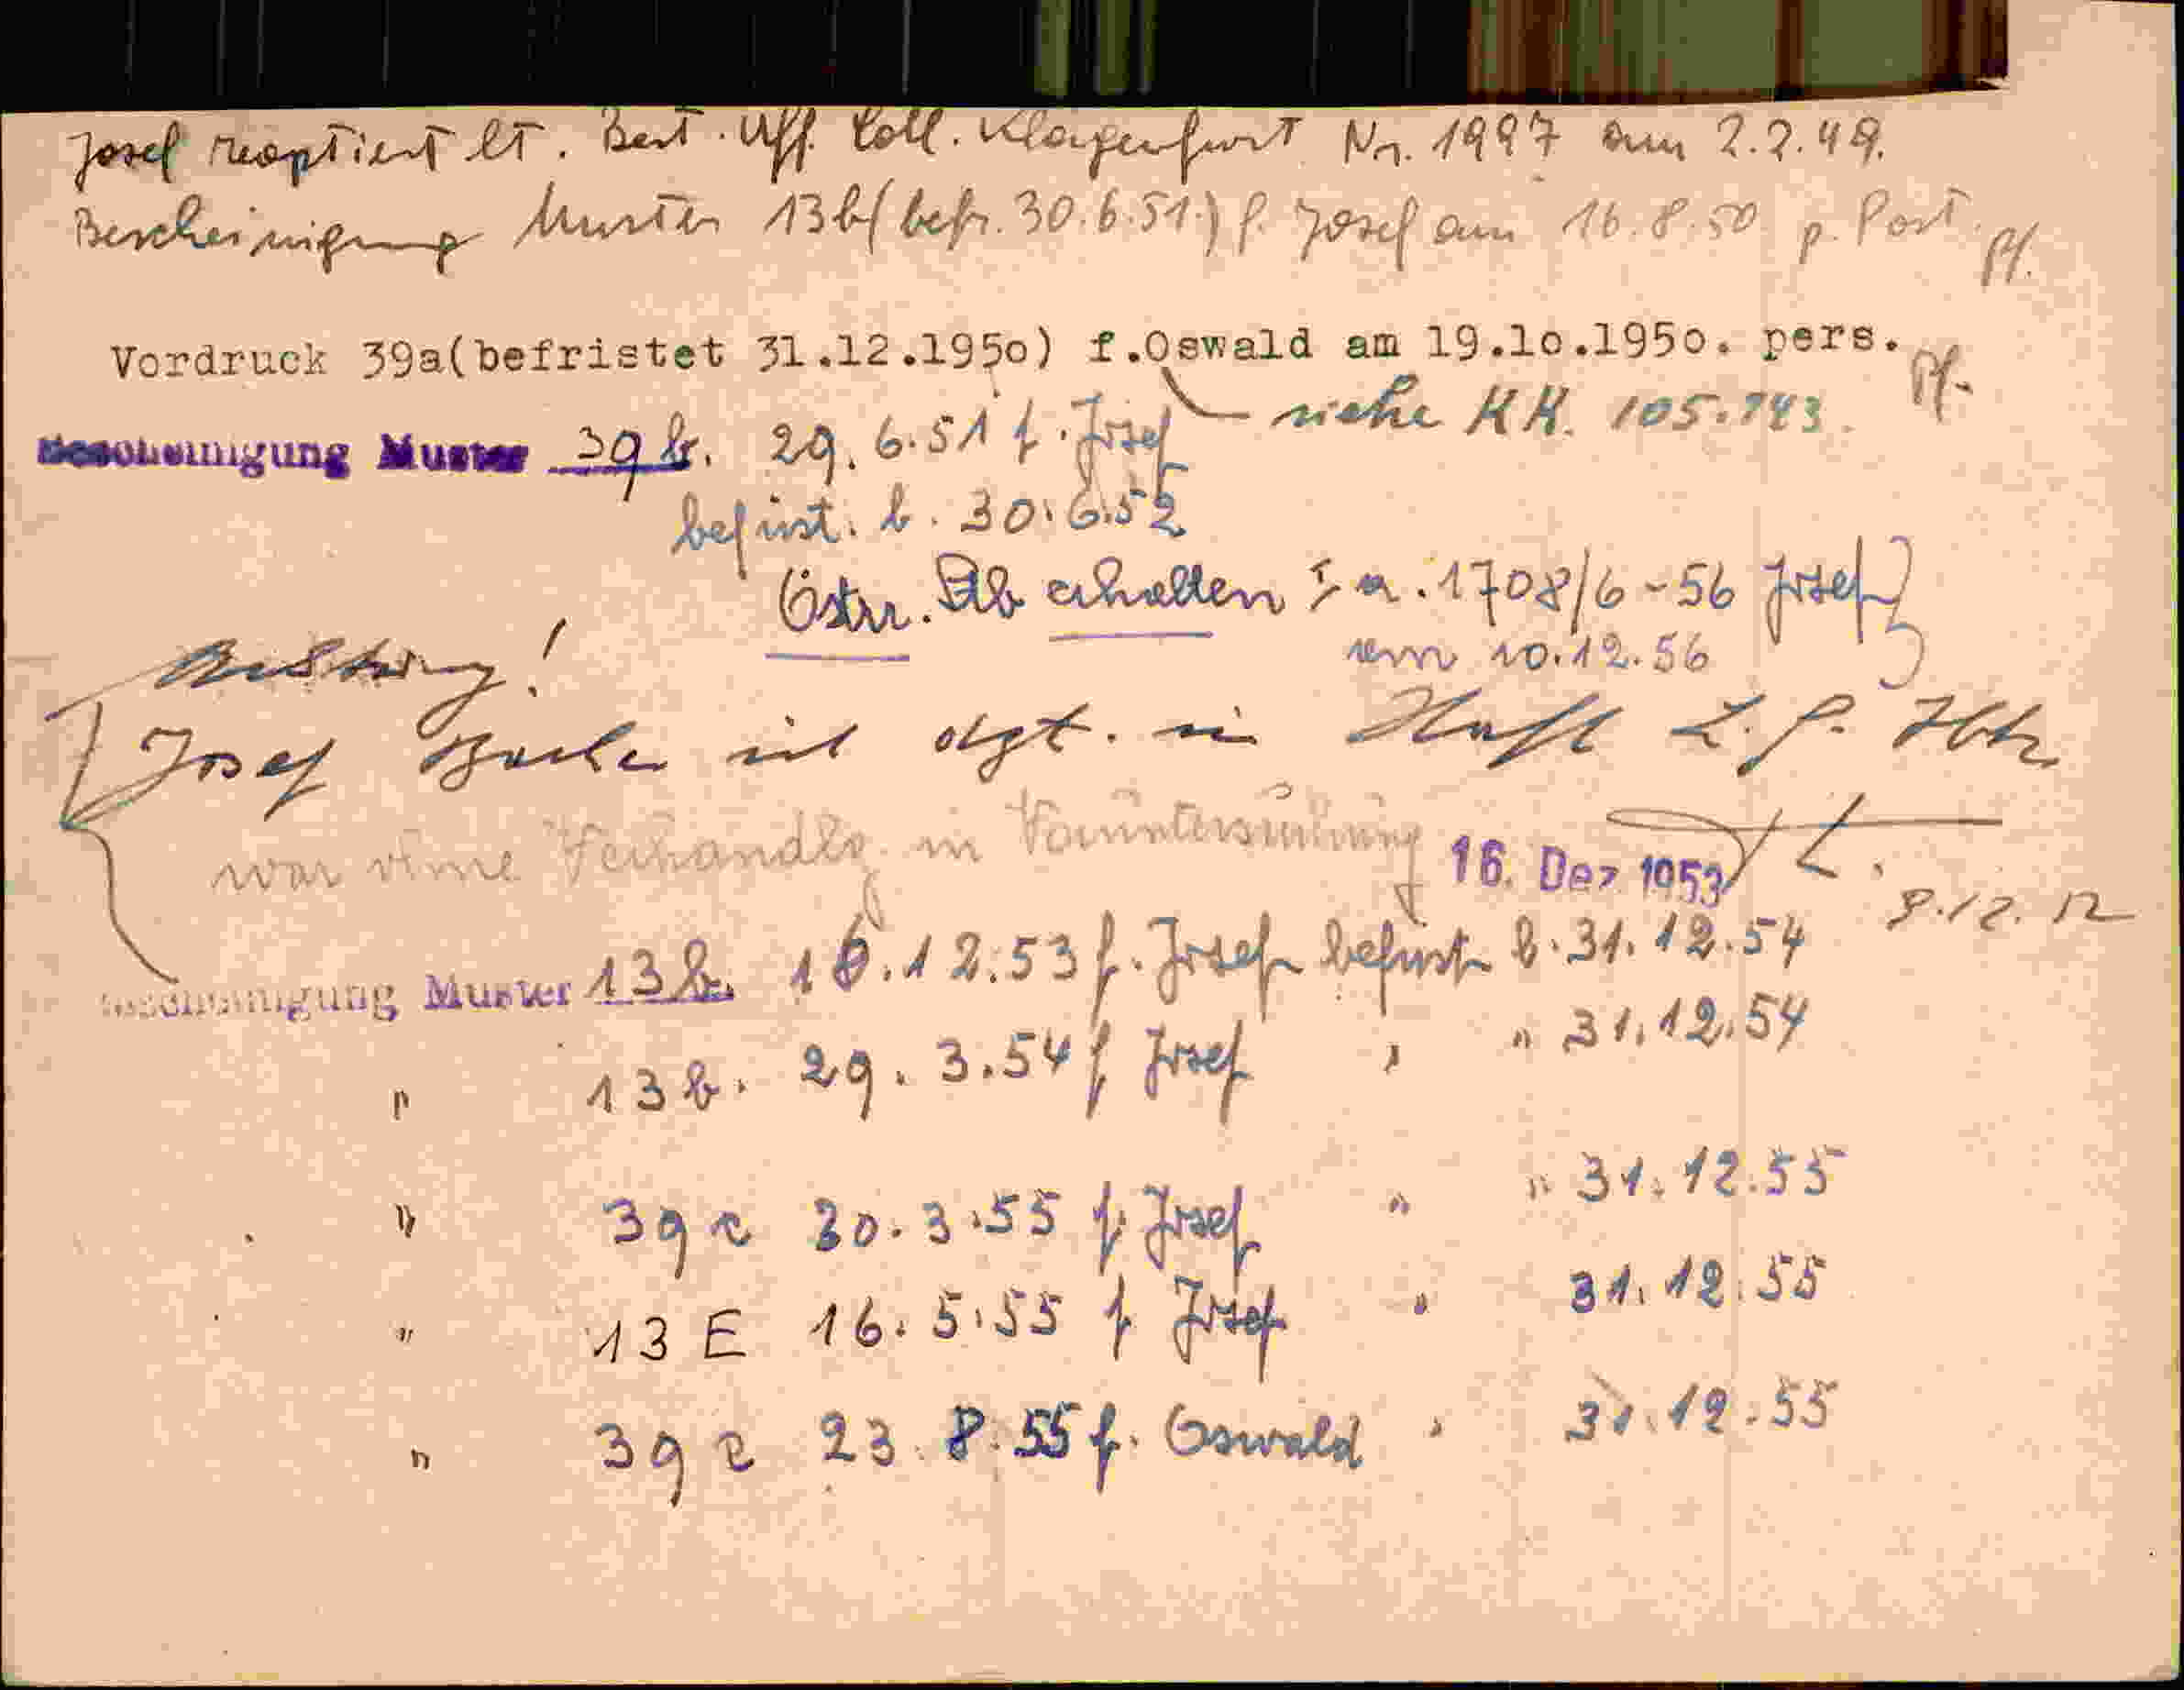 Josef reoptiert lt. Best. Uff. Coll. Klagenfurt Nr. 1997 am 2.2.49.
Bescheinigung Muster 13b (befr. 30.6.51.) f. Josef am 16.8.50 p. Post. Pf.
Vordruck 39a(befristet 31.12.195o) f.Oswald am 19.1o.195o. pers. Pf.
siehe KK. 105.743.
Bescheinigung Muster 39 b. 29.6.51 f. Josef
befrist. b. 30.6.52
Östr. Stb erhalten 1708/6-56 Josef
vom 10.12.56
Achtung!
Josef ist dzt. in Haft L.G.
war eine Verhandlg. in Voruntersuchung
16. Dez 1953
9.12.52
Bescheinigung Muster 13 b. 16.12.53 f. Josef befrist b. 31.12.54
" 13 b. 29.3.54 f Josef " " 31.12.54
" 39 c 30.3.55 f. Josef " " 31.12.55
" 13 E 16.5.55 f Josef " 31.12.55
" 39 c 23.8.55 f. Oswald " 31.12.55